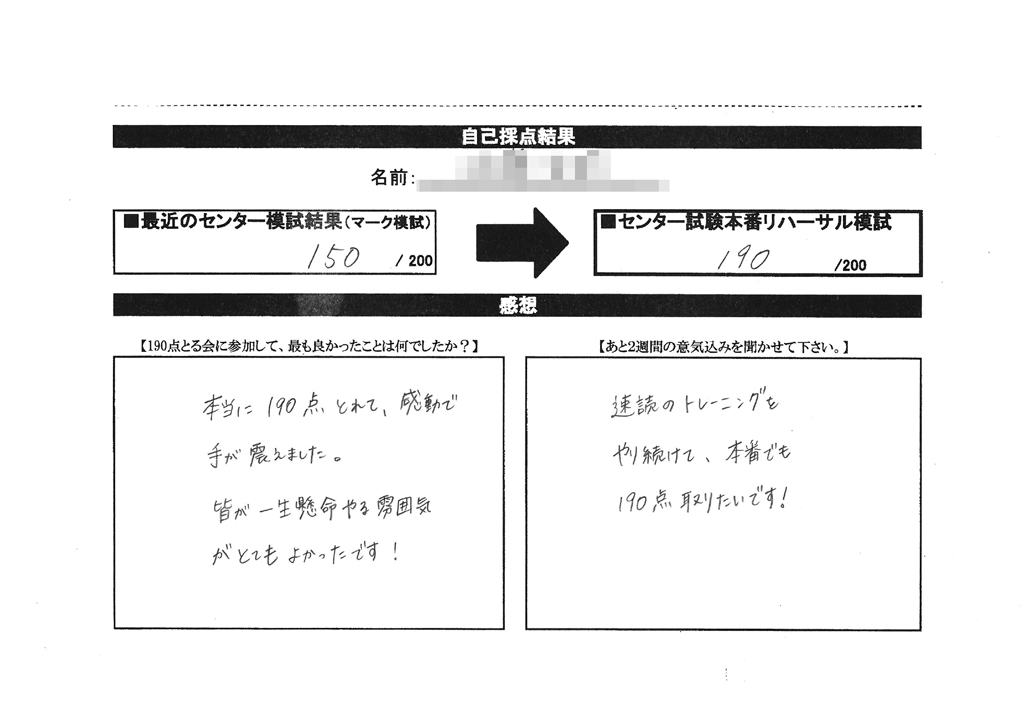 自己採点結果
名前:
■最近のセンター模試結果(マーク模試)
150 / 200
■センター試験本番リハーサル模試
190 /200
感想
【190点とる会に参加して、最も良かったことは何でしたか？】
本当に190点とれて、感動で
手が震えました。
皆が一生懸命やる雰囲気
がとてもよかったです！
【あと2週間の意気込みを聞かせて下さい。】
速読のトレーニングを
やり続けて、本番でも
190点取りたいです！